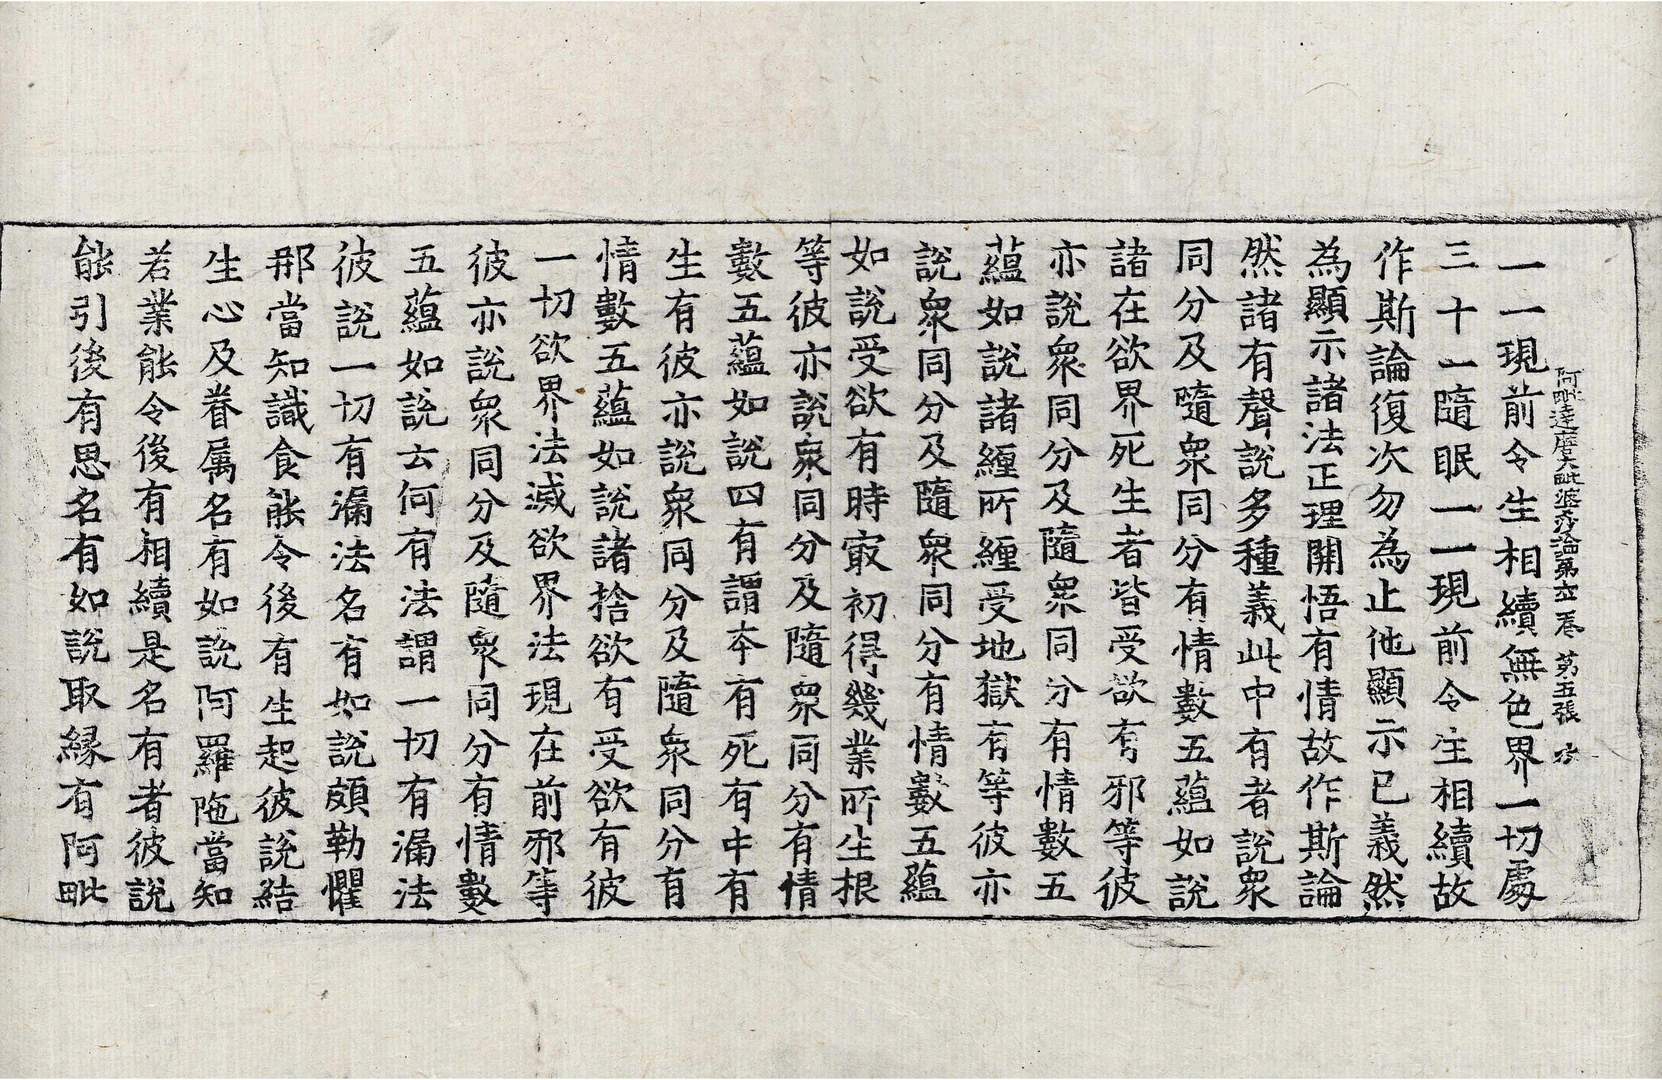 阿毗達磨大毗婆沙論第六十卷 第五張
一一現前令生相續無色界一切處
三十一隨眠一一現前令生相續故
作斯論復次勿為止他顯示已義然
為顯示諸法正理開悟有情故作斯論
然諸有聲說多種義此中有者說衆
同分及隨衆同分有情數五蘊如說
諸在欲界死生者皆受欲有邪等彼
亦說衆同分及隨衆同分有情數五
蘊如說諸纏所纏受地獄有等彼亦
說衆同分及隨衆同分有情數五蘊
如說受欲有時㝡初得幾業所生根
等彼亦說衆同分及隨衆同分有情
數五蘊如說四有謂本有死有中有
生有彼亦說衆同分及隨衆同分有
情數五蘊如說諸捨欲有受欲有彼
一切欲界法滅欲界法現在前邪等
彼亦說衆同分及隨衆同分有情數
五蘊如說云何有法謂一切有漏法
彼說一切有漏法名有如說頗勒懼
那當知識食能令後有生起彼說結
生心及眷属名有如說阿羅陁當知
若業能令後有相續是名有者彼說
能引後有思名有如說取縁有阿毗